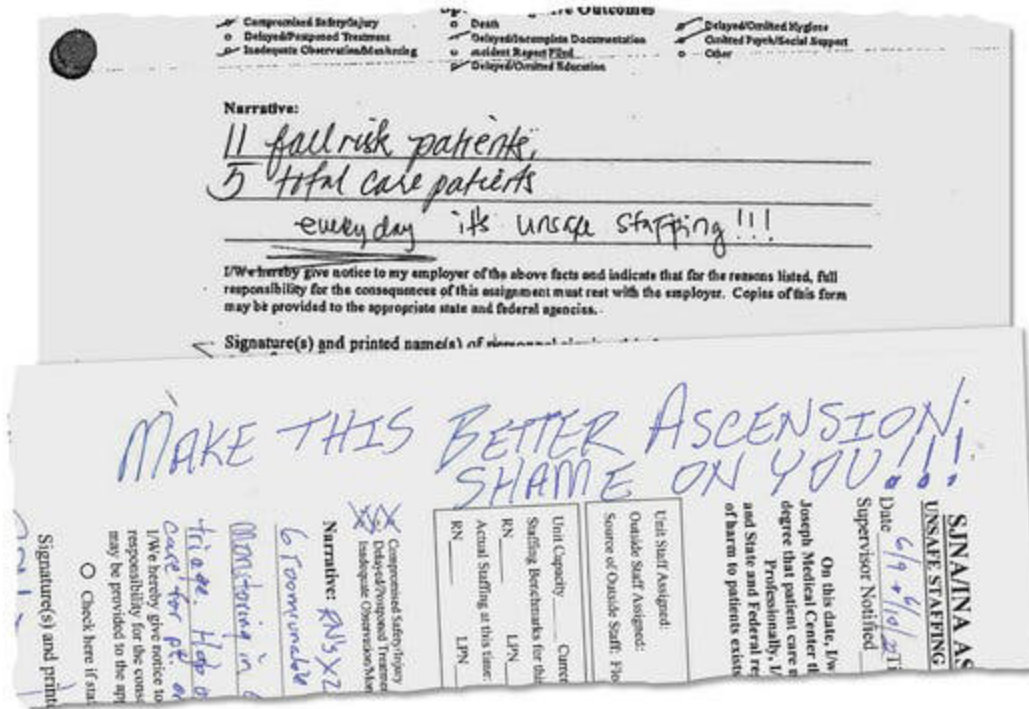 Outcomes
Compromised Safety/Injury
o Death
Delayed/Omitted Hygiene
o Delayed/Postponed Treatment
Delayed/Incomplete Documentation
Omitted Psych/Social Support
Inadequate Observation/Monitoring
o Incident Report Filed
o Other
Delayed/Omitted Education
Narrative:
11 fall risk patients,
5 total care patients
everyday it's unsafe staffing!!!
I/We hereby give notice to my employer of the above facts and indicate that for the reasons listed, full
responsibility for the consequences of this assignment must rest with the employer. Copies of this form
may be provided to the appropriate state and federal agencies.
Signature(s) and printed name(s) of personnel
MAKE THIS BETTER ASCENSION.
SHAME ON YOU!!!
SJNA/INA AS
UNSAFE STAFFING
Date 6/9 + 6/10/2
Supervisor Notified
On this date, I/w
Joseph Medical Center th
degree that patient care n
Professionally, I/
and State and Federal re
of harm to patients exists
Unit Staff Assigned:
Outside Staff Assigned:
Source of Outside Staff: Flo
Unit Capacity ____ Curre
Staffing Benchmarks for this
RN____ LPN
Actual Staffing at this time:
RN____ LPN
Compromised Safety/Injury
Delayed/Postponed Treatmen
Inadequate Observation/Mon
Narrative: RN's X2
6 rooms unable
Monitoring in
triage. Help
care for pt.
I/We hereby give notice to
responsibility for the cons
may be provided to the app
O Check here if stat
Signature(s) and printe